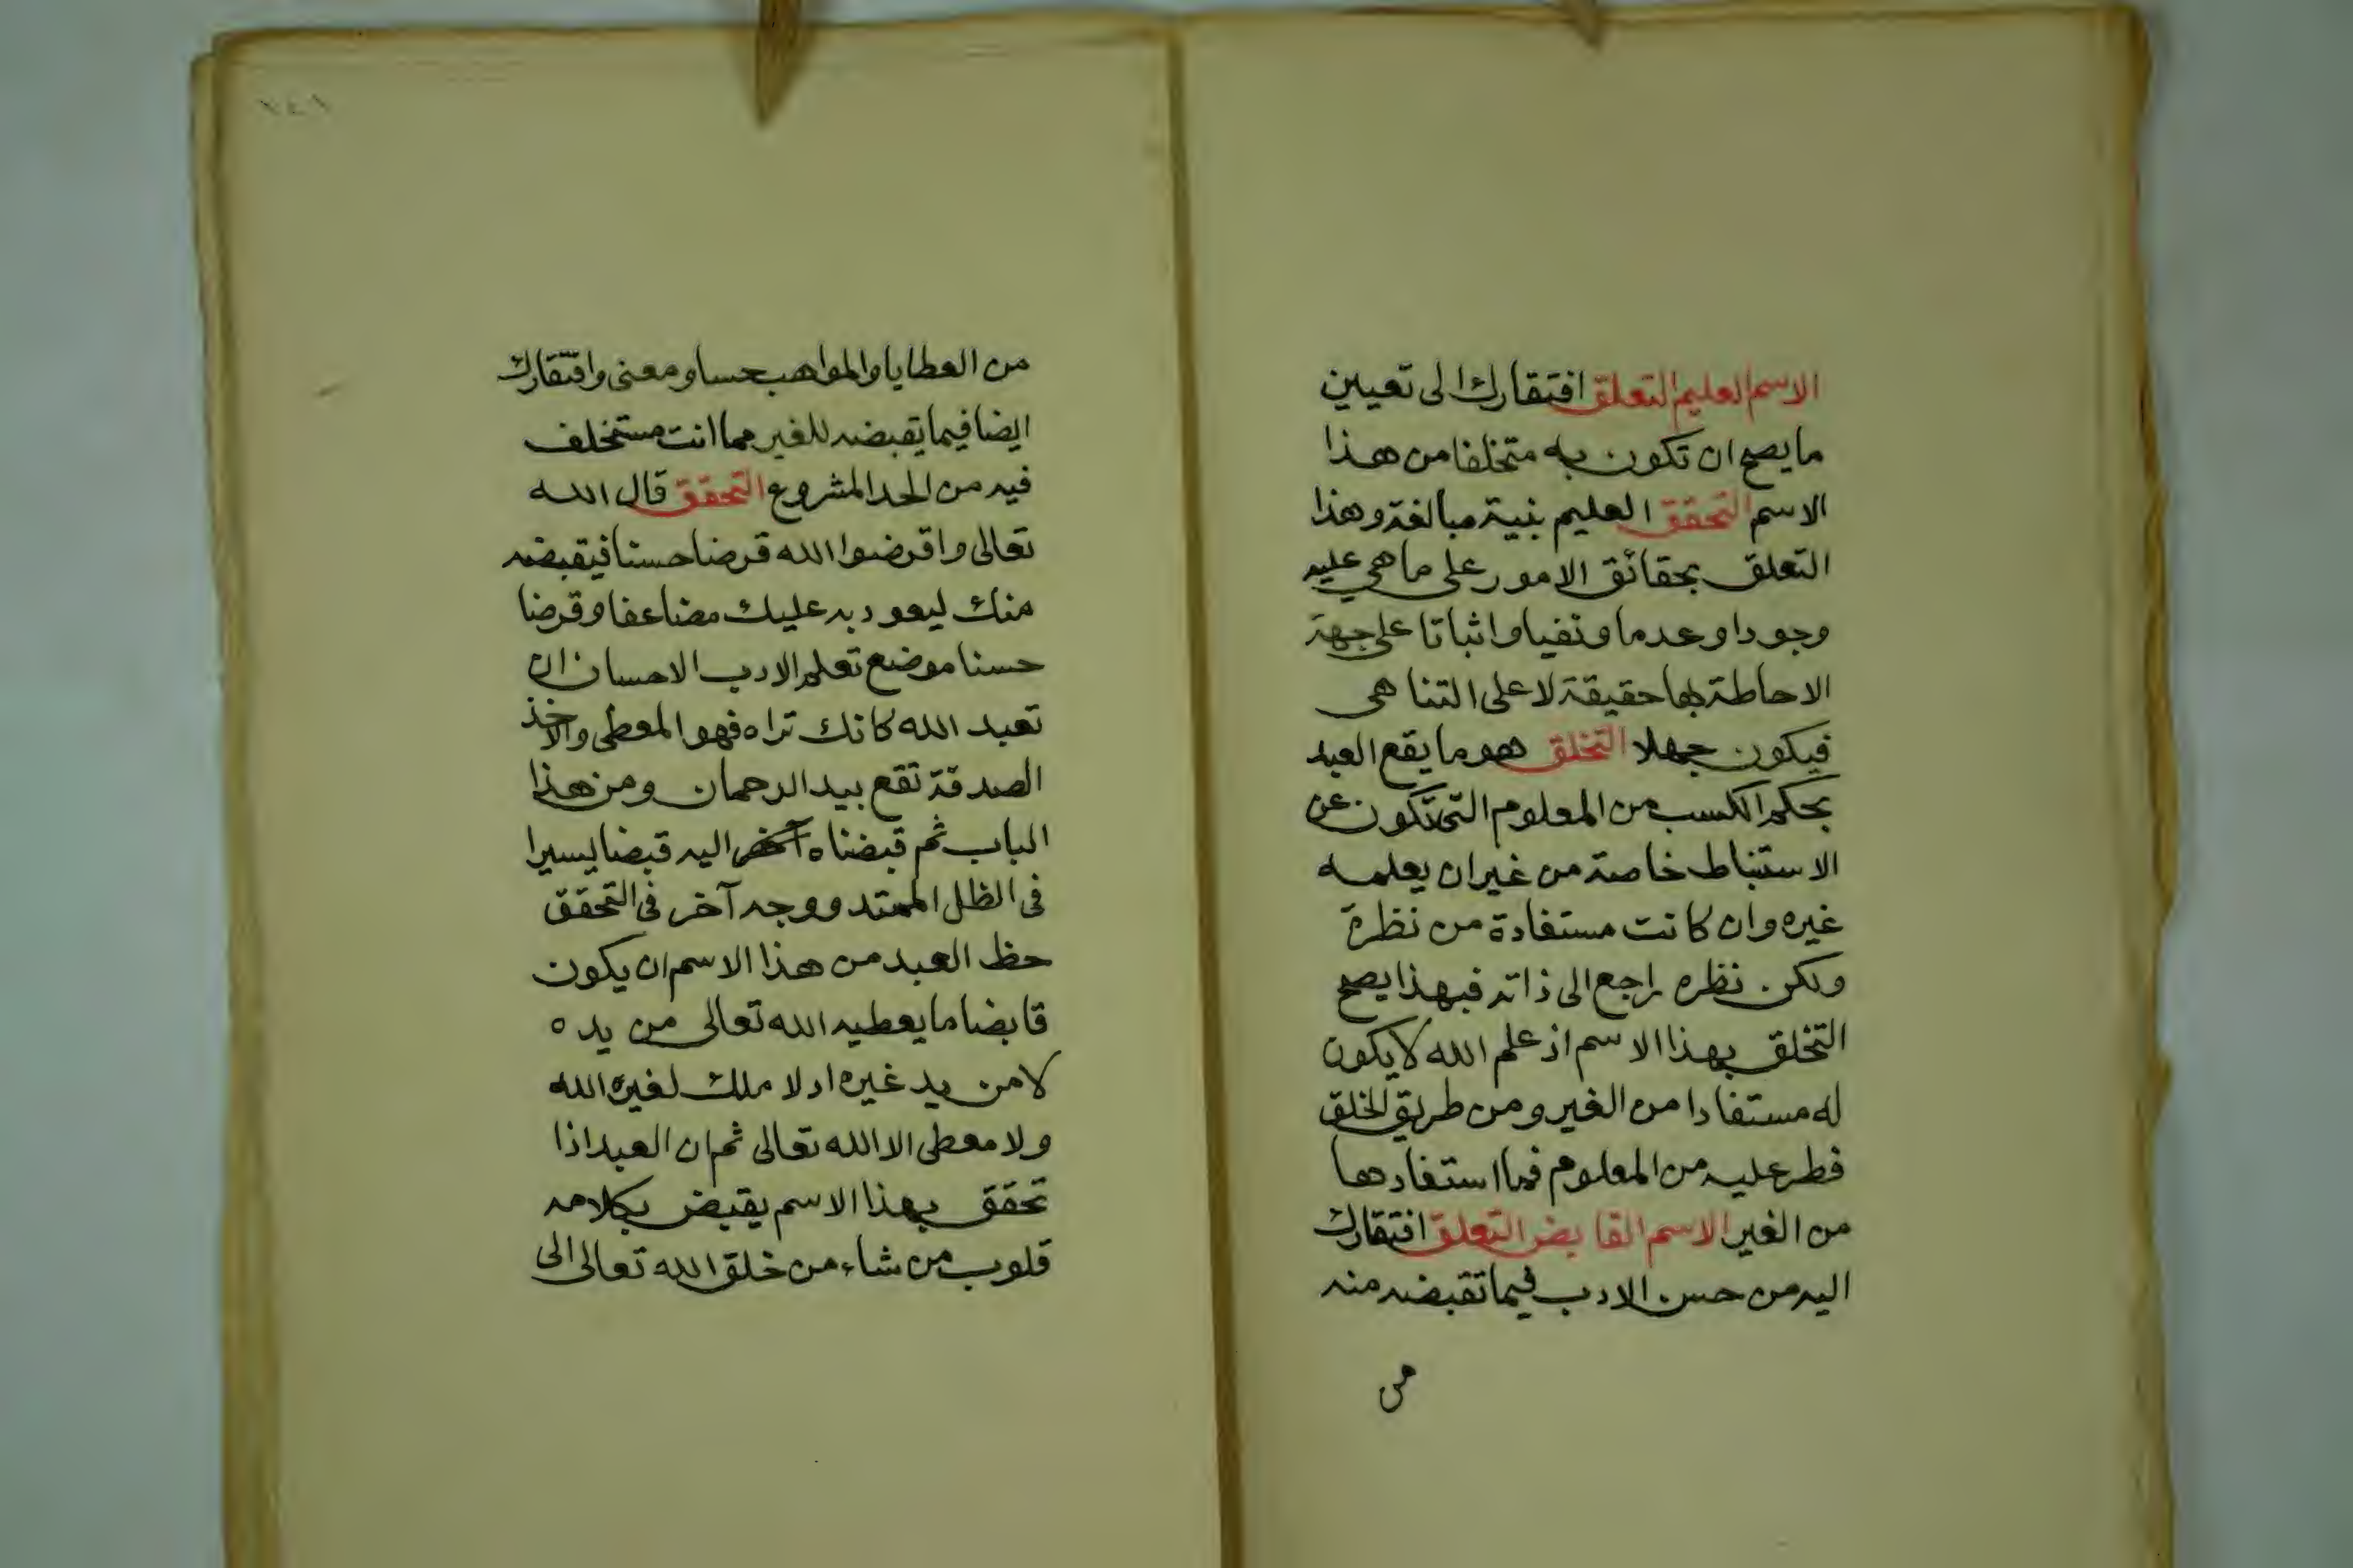 الاسم العليم التعلق افتقارك الى تعيين
ما يصح ان تكون به متخلقا من هذا
الاسم التحقق العليم بنية مبالغة وهذا
التعلق بحقائق الامور على ما هي عليه
وجودا وعدما ونفيا واثباتا على جهة
الاحاطة بها حقيقة لا على التناهى
فيكون جهلا التخلق هو ما يقع العبد
بحكم الكسب من المعلوم التى تكون عن
الاستنباط خاصة من غير ان يعلمه
غيره وان كانت مستفادة من نظرة
ولكن نظره راجع الى ذاته فبهذا يصح
التخلق بهذا الاسم اذ علم الله لا يكون
له مستفادا من الغير ومن طريق الخلق
فطر عليه من المعلوم فما استفادها
من الغير الاسم القابض التعلق افتقارك
اليه من حسن الادب فيما تقبضه منه
من
٢٤١
من العطايا والمواهب حسا ومعنى وافتقارك
ايضا فيما يقبضه للغير مما انت مستخلف
فيه من الحد المشروع التحقق قال الله
تعالى واقرضوا الله قرضا حسنا فيقبضه
منك ليعود به عليك مضاعفا وقرضا
حسنا موضع تعلم الادب الاحسان ان
تعبد الله كانك تراه فهو المعطى والاخذ
الصدقة تقع بيد الرحمان ومن هذا
الباب ثم قبضناه اليه قبضا يسيرا
فى الظل الممتد ووجه آخر فى التحقق
حظ العبد من هذا الاسم ان يكون
قابضا ما يعطيه الله تعالى من يده
لا من يد غيره اد لا ملك لغيره الله
ولا معطى الا الله تعالى ثم ان العبد اذا
تحقق بهذا الاسم يقبض بكلامه
قلوب من شاء من خلق الله تعالى الى